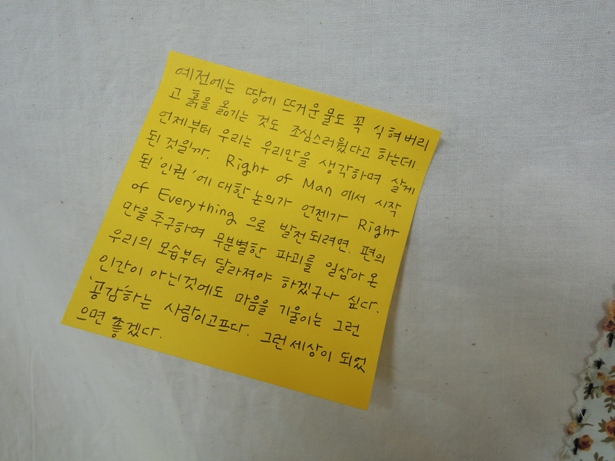 예전에는 땅에 뜨거운 물도 꼭 식혀 버리
고 흙을 옮기는 것도 조심스러웠다고 하는데
언제부터 우리는 우리만을 생각하며 살게
된 것일까. Right of Man 에서 시작
된 '인권'에 대한 논의가 언젠가 Right
of Everything 으로 발전되려면 편의
만을 추구하며 무분별한 파괴를 일삼아온
우리의 모습부터 달라져야 하겠구나 싶다.
인간이 아닌것에도 마음을 기울이는 그런
'공감'하는 사람이고프다. 그런 세상이 되었
으면 좋겠다.